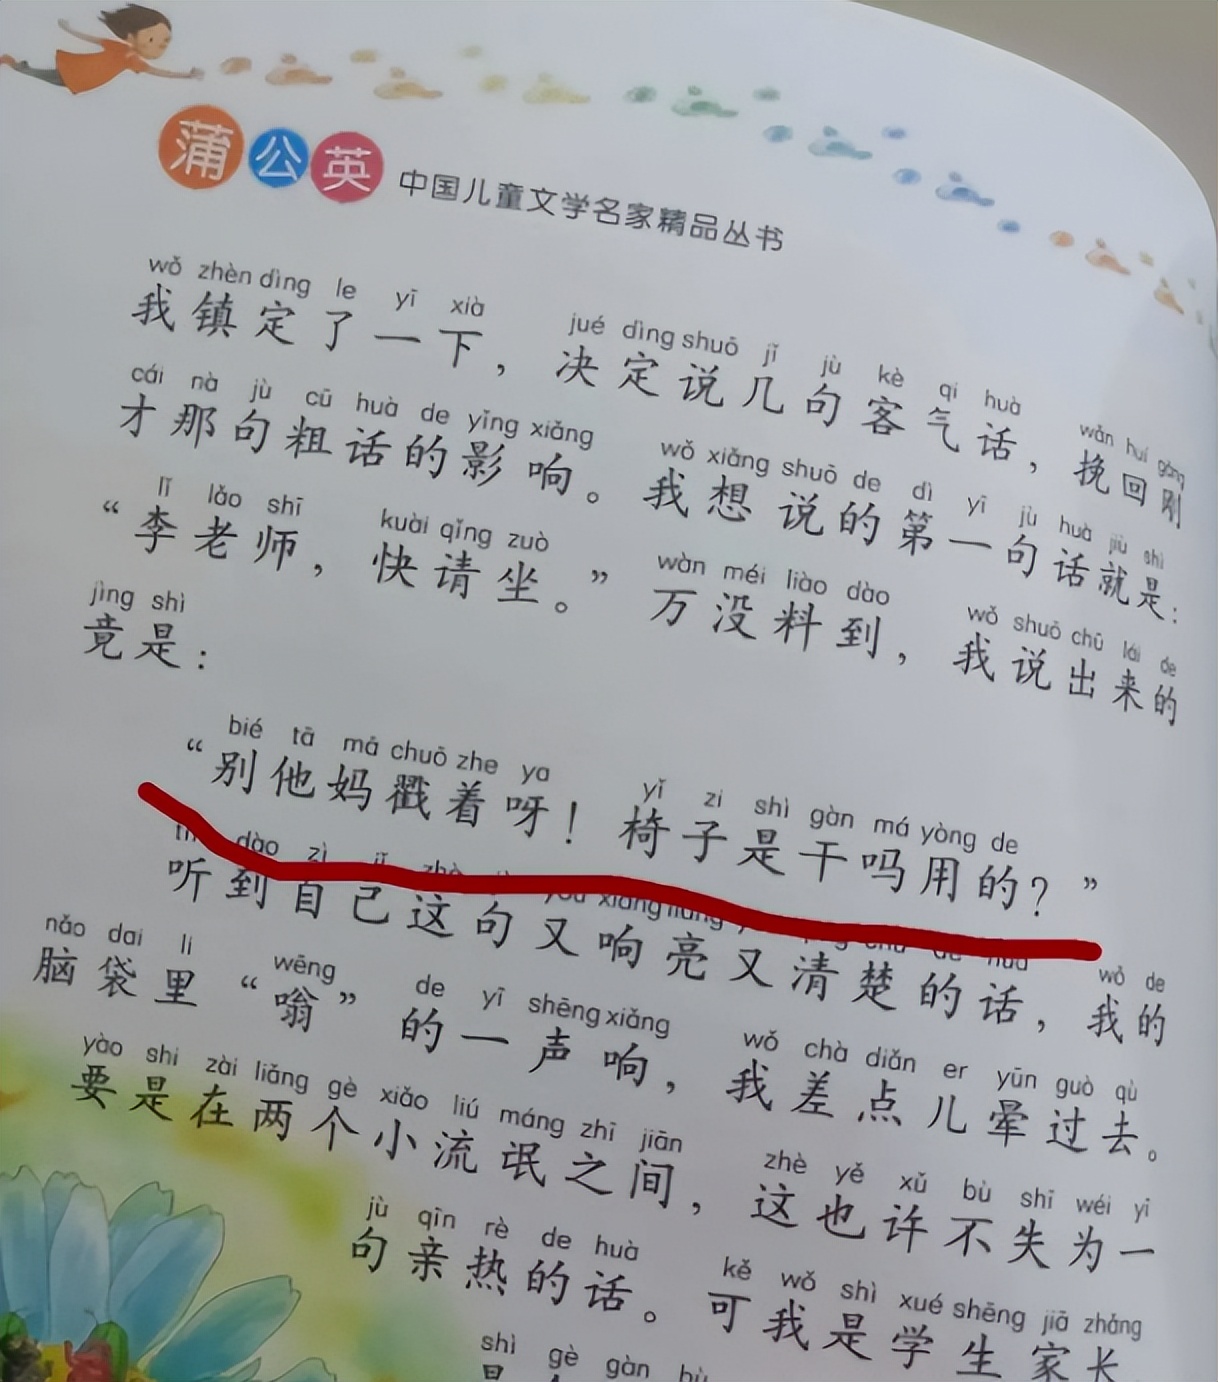 蒲公英 中国儿童文学名家精品丛书
wǒ zhèn dìng le yī xià jué dìng shuō jǐ jù kè qi huà wǎn huí gāng
我镇定了一下，决定说几句客气话，挽回刚
cái nà jù cū huà de yǐng xiǎng wǒ xiǎng shuō de dì yī jù huà jiù shì
才那句粗话的影响。我想说的第一句话就是：
lǐ lǎo shī kuài qǐng zuò wàn méi liào dào wǒ shuō chū lái de
“李老师，快请坐。”万没料到，我说出来的
jìng shì
竟是：
bié tā mā chuō zhe ya yǐ zi shì gàn má yòng de
“别他妈戳着呀！椅子是干吗用的？”
dào zì jǐ zhè xiǎng liàng
听到自己这句又响亮又清楚的话，我的
wǒ de
nǎo dai li wēng de yī shēng xiǎng wǒ chà diǎn er yūn guò qù
脑袋里“嗡”的一声响，我差点儿晕过去。
yào shi zài liǎng gè xiǎo liú máng zhī jiān zhè yě xǔ bù shī wéi yī
要是在两个小流氓之间，这也许不失为一
jù qīn rè de huà kě wǒ shì xué shēng jiā zhǎng
句亲热的话。可我是学生家长
shì gè gàn bù